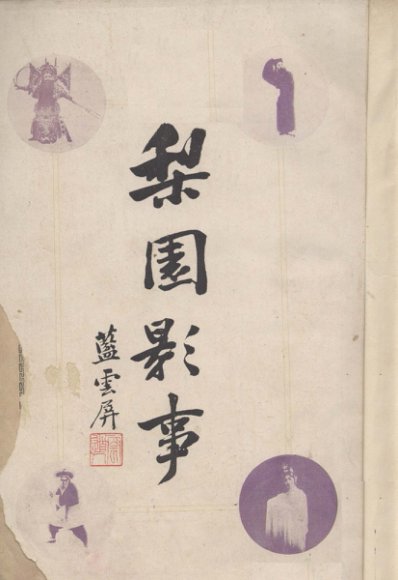 梨園影事
藍雲屏